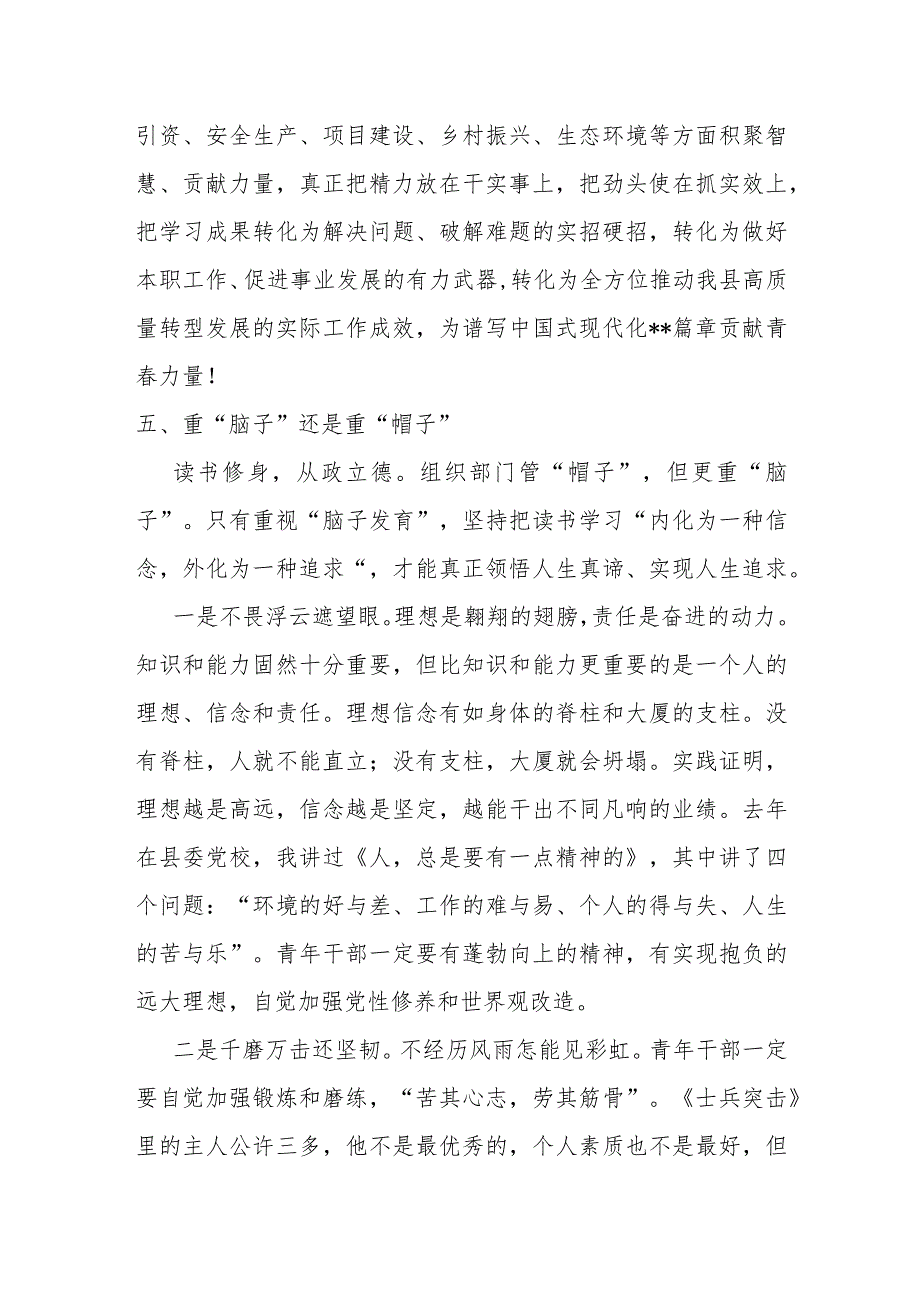 引资、安全生产、项目建设、乡村振兴、生态环境等方面积聚智
慧、贡献力量，真正把精力放在干实事上，把劲头使在抓实效上，
把学习成果转化为解决问题、破解难题的实招硬招，转化为做好
本职工作、促进事业发展的有力武器,转化为全方位推动我县高质
量转型发展的实际工作成效，为谱写中国式现代化**篇章贡献青
春力量！
五、重“脑子”还是重“帽子”
读书修身，从政立德。组织部门管“帽子”，但更重“脑
子”。只有重视“脑子发育”，坚持把读书学习“内化为一种信
念，外化为一种追求“，才能真正领悟人生真谛、实现人生追求。
一是不畏浮云遮望眼。理想是翱翔的翅膀,责任是奋进的动力。
知识和能力固然十分重要，但比知识和能力更重要的是一个人的
理想、信念和责任。理想信念有如身体的脊柱和大厦的支柱。没
有脊柱，人就不能直立；没有支柱，大厦就会坍塌。实践证明，
理想越是高远，信念越是坚定，越能干出不同凡响的业绩。去年
在县委党校，我讲过《人，总是要有一点精神的》，其中讲了四
个问题：“环境的好与差、工作的难与易、个人的得与失、人生
的苦与乐”。青年干部一定要有蓬勃向上的精神，有实现抱负的
远大理想，自觉加强党性修养和世界观改造。
二是千磨万击还坚韧。不经历风雨怎能见彩虹。青年干部一定
要自觉加强锻炼和磨练，“苦其心志，劳其筋骨”。《士兵突击》
里的主人公许三多，他不是最优秀的，个人素质也不是最好，但